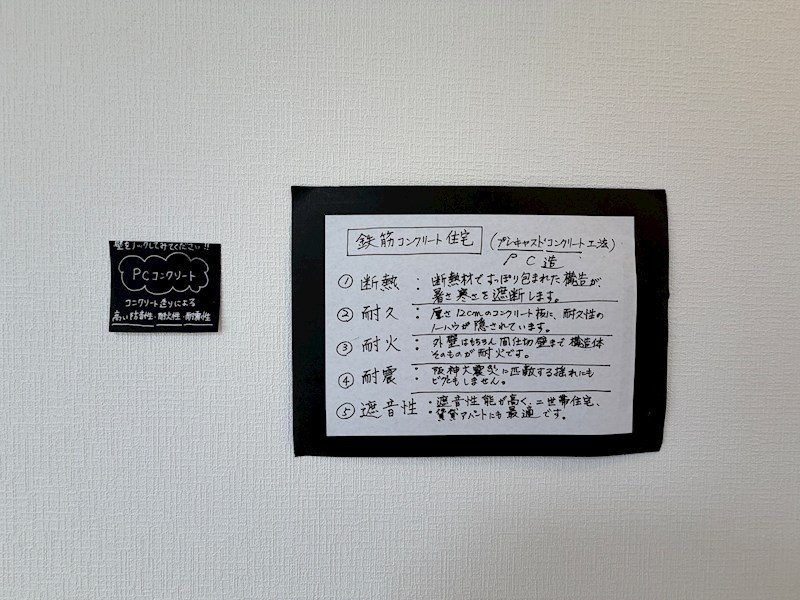 壁をノックしてみてください!!
PCコンクリート
コンクリート造りによる
高い防音性・耐火性・耐震性
鉄筋コンクリート住宅 (プレキャストコンクリート工法)
PC造
① 断熱 : 断熱材ですっぽり包まれた構造が、
暑さ寒さを遮断します。
② 耐久 : 厚さ12cmのコンクリート板に、耐久性の
ノーハウが隠されています。
③ 耐火 : 外壁はもちろん間仕切壁まで構造体
そのものが耐火です。
④ 耐震 : 阪神大震災に匹敵する揺れにも
ビクともしません。
⑤ 遮音性 : 遮音性能が高く、二世帯住宅、
賃貸アパートにも最適です。